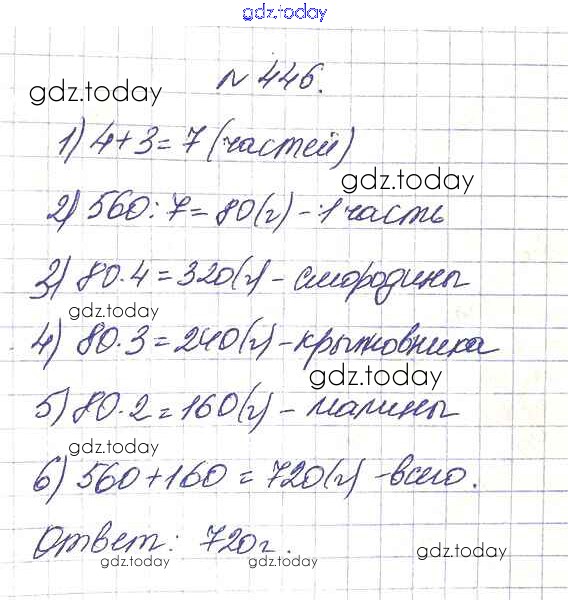 gdz.today
№ 446.
gdz.today
1) 4+3=7 (частей)
gdz.today
2) 560:7=80(г) - 1 часть
3) 80·4=320(г) - смородины
gdz.today
4) 80·3=240(г) - крыжовника
gdz.today
5) 80·2=160(г) - малины
gdz.today
6) 560+160=720(г) - всего.
Ответ: 720г.
gdz.today gdz.today gdz.today